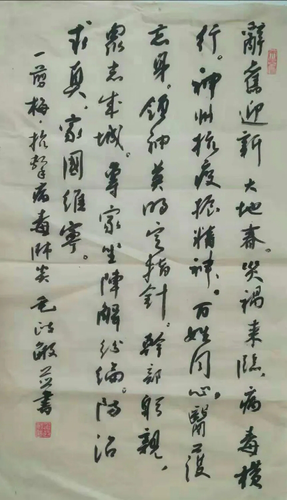 辭舊迎新大地春。災禍來臨，病毒橫
行。神州抗疫振精神。百姓同心，醫護
忘身。領袖英明定指針。幹部躬親，
眾志成城。專家坐陣解紛綸。防治
求真，家國維寧。
一剪梅 抗擊病毒肺炎 毛政敏 並書